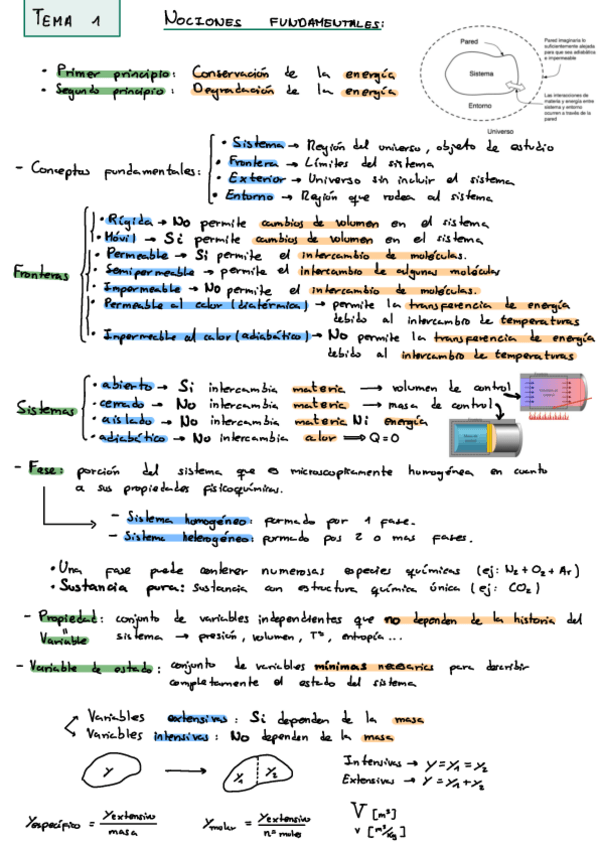 TEMA 1
NOCIONES FUNDAMENTALES:
• Primer principio: Conservación de la energía
• Segundo principio: Degradación de la energía
Pared
Sistema
Entorno
Universo
Pared imaginaria lo
suficientemente alejada
para que sea adiabática
e impermeable
Las interacciones de
materia y energía entre
sistema y entorno
ocurren a través de la
pared
- Conceptos fundamentales:
• Sistema → Región del universo, objeto de estudio
• Frontera → Límites del sistema
• Exterior → Universo sin incluir el sistema
• Entorno → Región que rodea al sistema
Fronteras
• Rígida → No permite cambios de volumen en el sistema
• Móvil → Si permite cambios de volumen en el sistema
• Permeable → Si permite el intercambio de moléculas.
• Semipermeable → permite el intercambio de algunas moléculas
• Impermeable → No permite el intercambio de moléculas.
• Permeable al calor (diatérmica) → permite la transferencia de energía
debido al intercambio de temperaturas
• Impermeable al calor (adiabático) → No permite la transferencia de energía
debido al intercambio de temperaturas
Sistemas
• abierto → Si intercambia materia → volumen de control
• cerrado → No intercambia materia → masa de control
• aislado → No intercambia materia Ni energía
• adiabático → No intercambia calor ⟹ Q=0
- Fase: porción del sistema que es microscopicamente homogénea en cuanto
a sus propiedades fisicoquímicas.
- Sistema homogéneo: formado por 1 fase.
- Sistema heterogéneo: formado pos 2 o mas fases.
• Una fase puede contener numerosas especies químicas (ej: N₂ + O₂ + Ar)
• Sustancia pura: sustancia con estructura química única (ej: CO₂)
- Propiedad: conjunto de variables independientes que no dependen de la historia del
"
Variable sistema → presión, volumen, Tª, entropía...
- Variable de estado: conjunto de variables mínimas necesarias para describir
completamente el estado del sistema
Variables extensivas: Si dependen de la masa
Variables intensivas: No dependen de la masa
y → y₁ y₂
Intensivas → y = y₁ = y₂
Extensivas → y = y₁ + y₂
y específico = y extensivo / masa
y molar = y extensivo / nº moles
V [m³]
v [m³/kg]